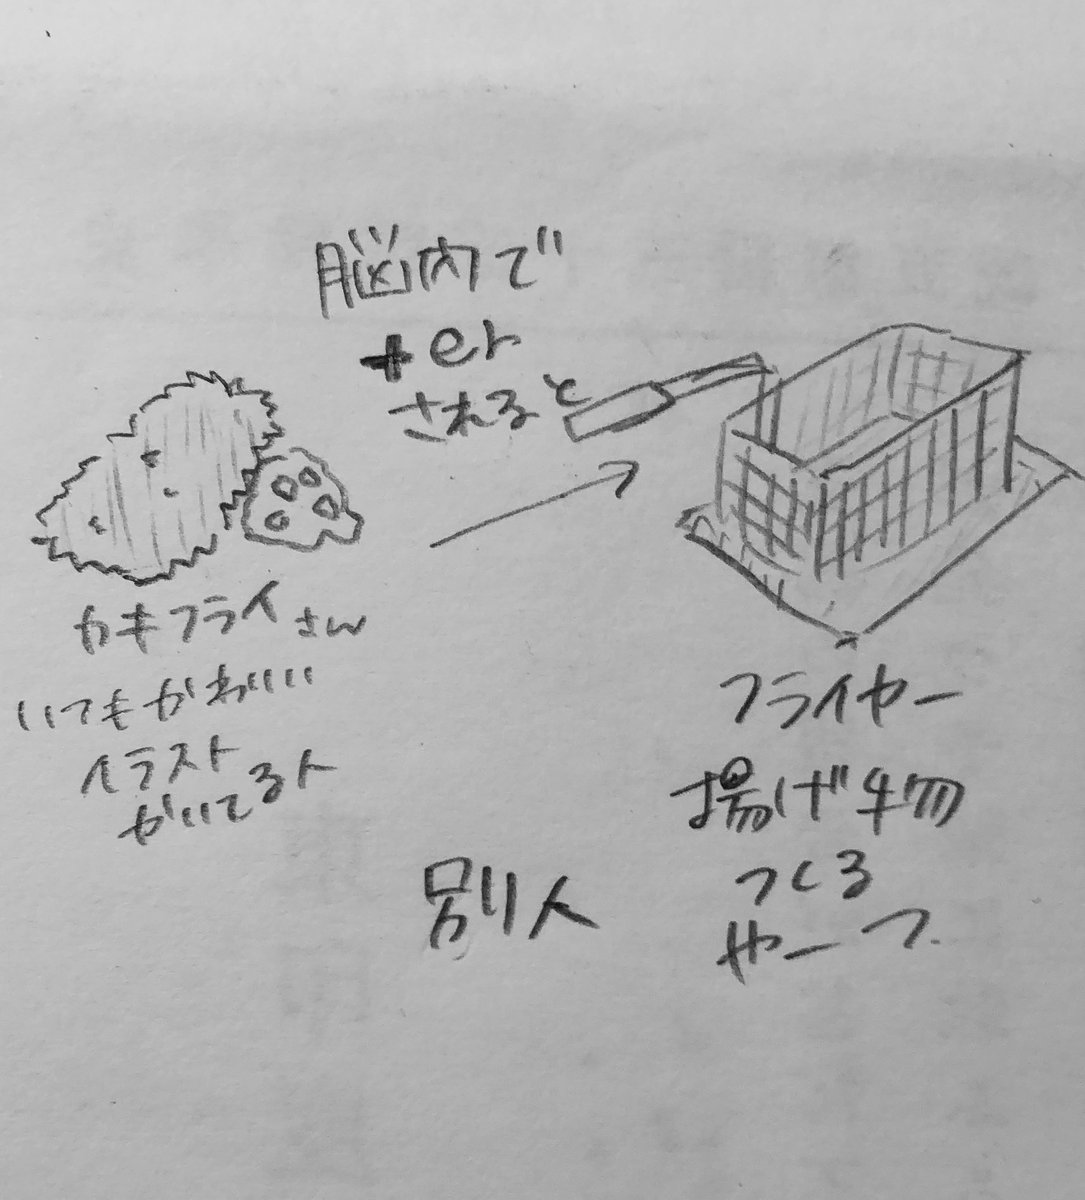 脳内で
+er
されると
カキフライさん
いつもかわいい
イラスト
かいてる人
フライヤー
揚げ物
つくる
やーつ
別人